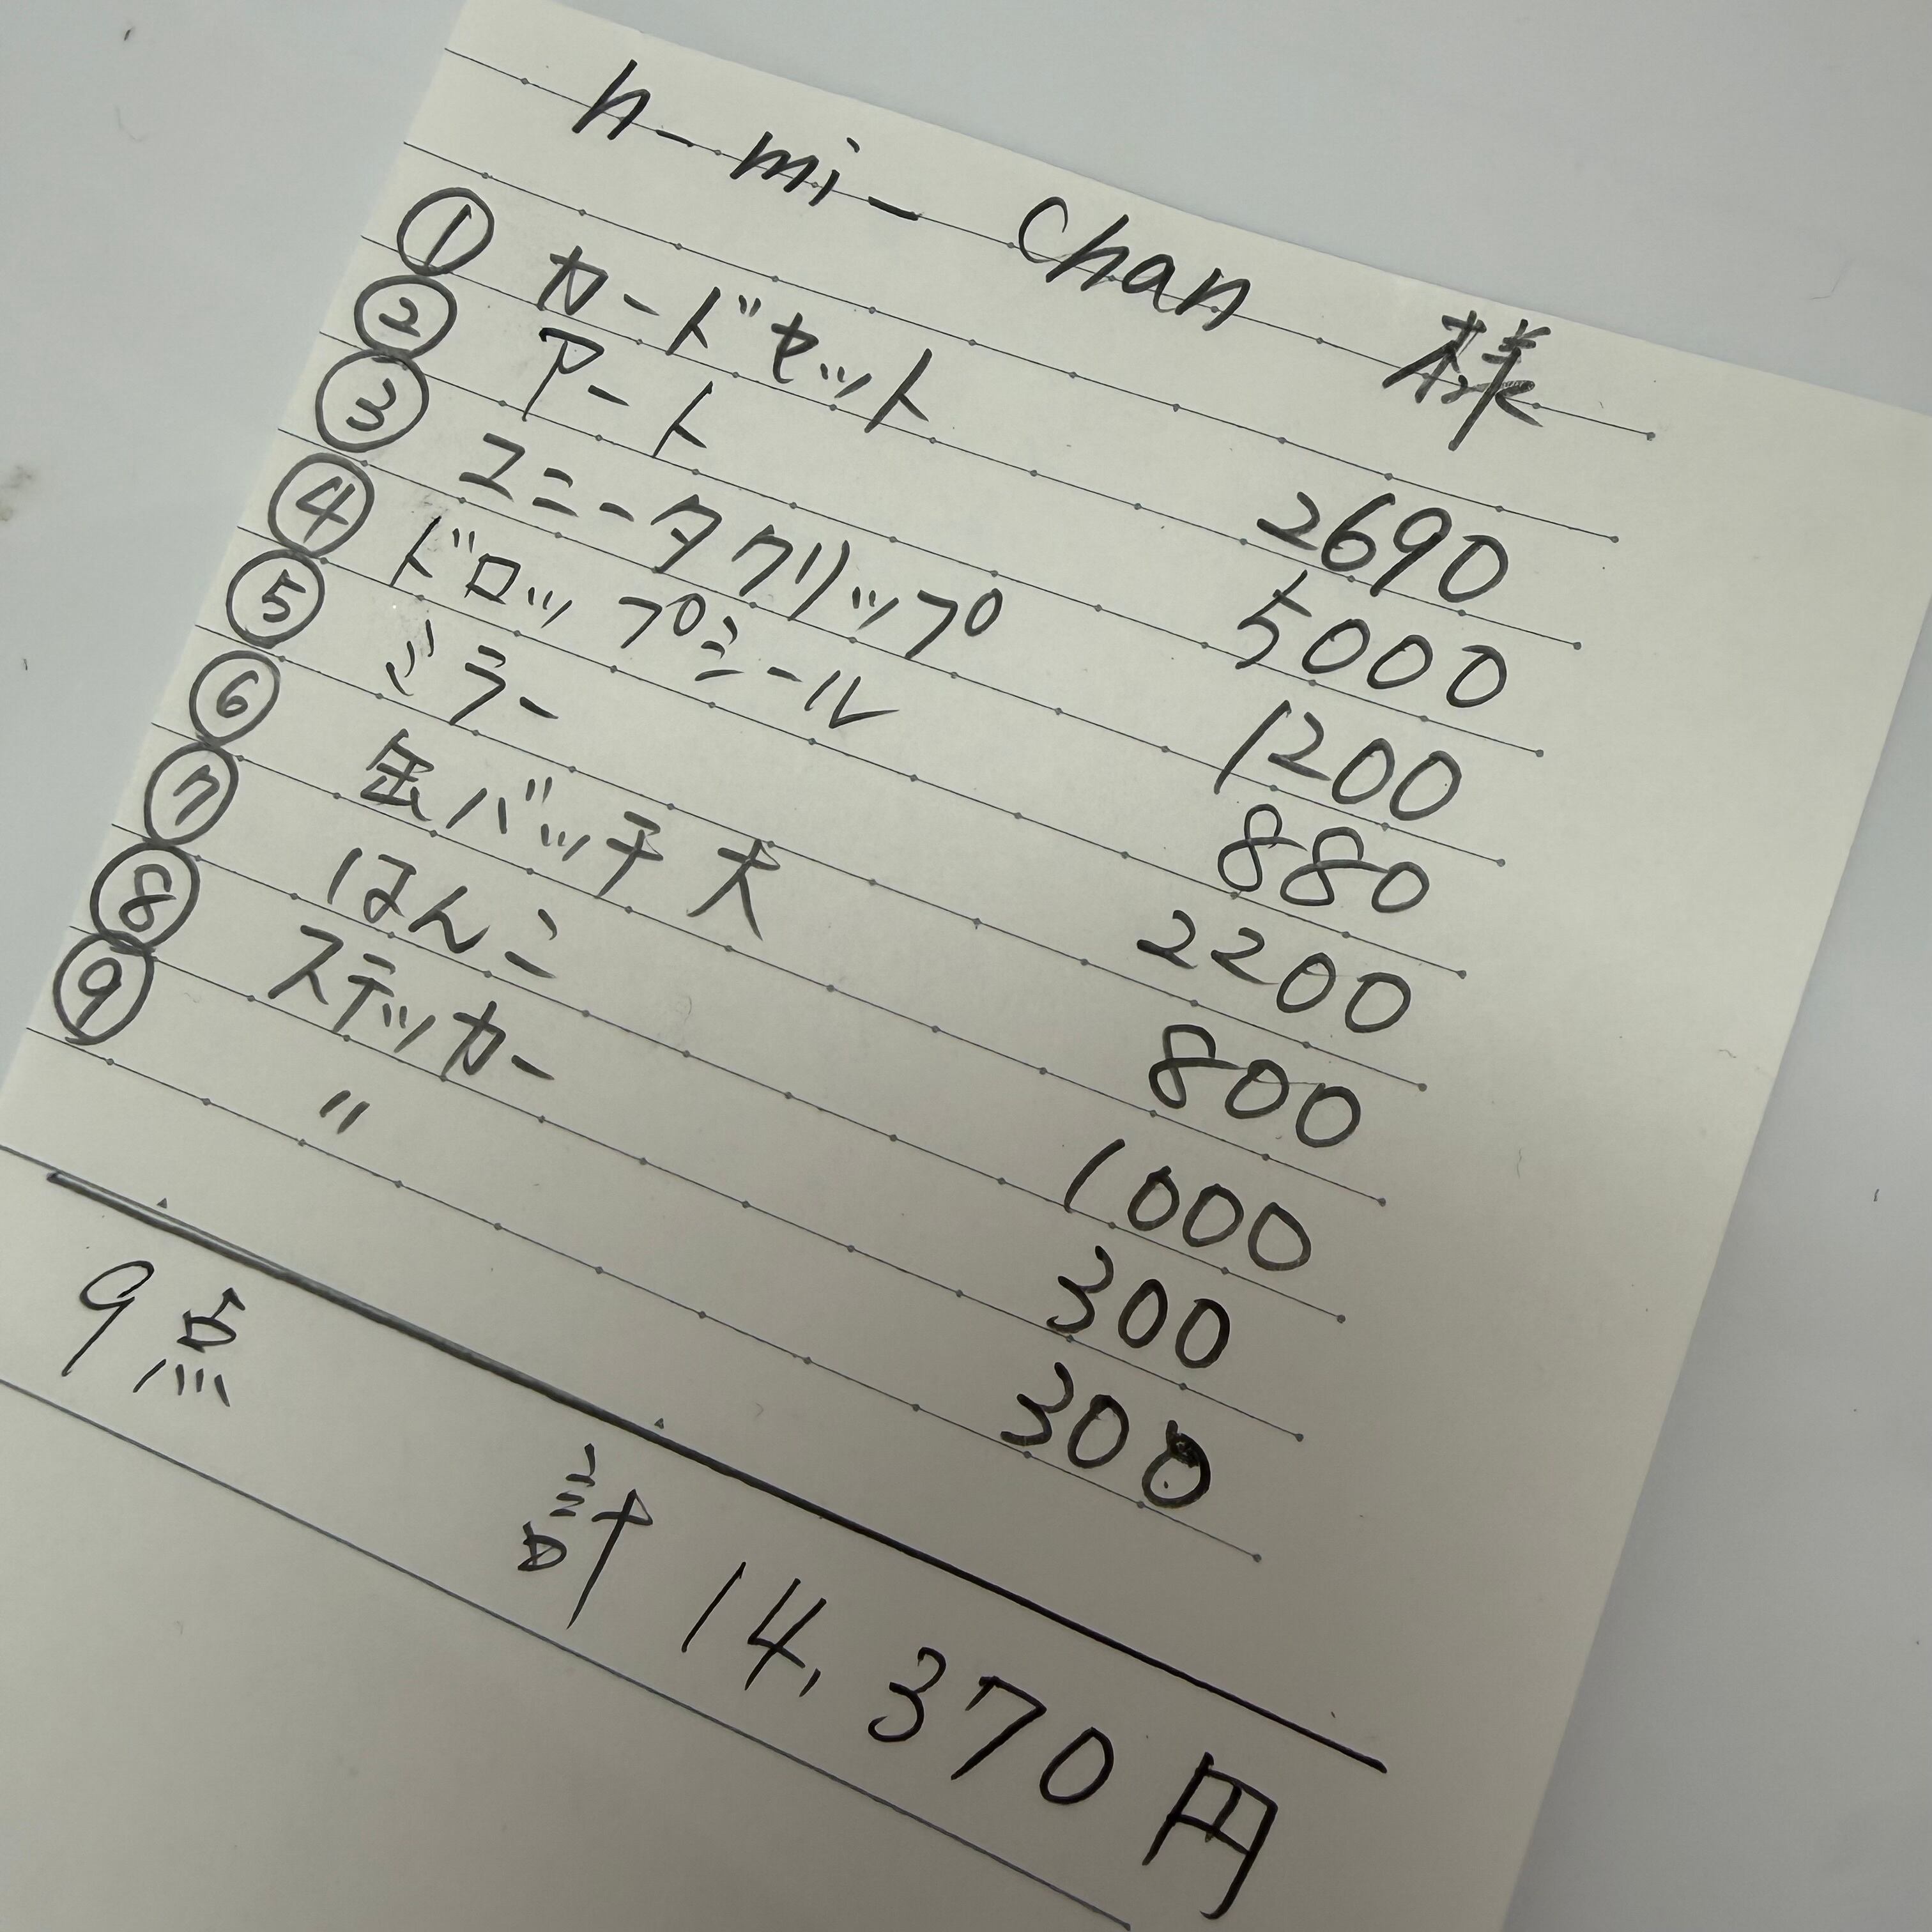 h-mi-chan 様
① カードセット 2690
② アート 5000
③ ユニータクリップ 1200
④ ドロップシール 880
⑤ ミラー 2200
⑥ 缶バッチ大 800
⑦ はんこ 1000
⑧ ステッカー 300
⑨ 〃 300
9点
計 14,370円